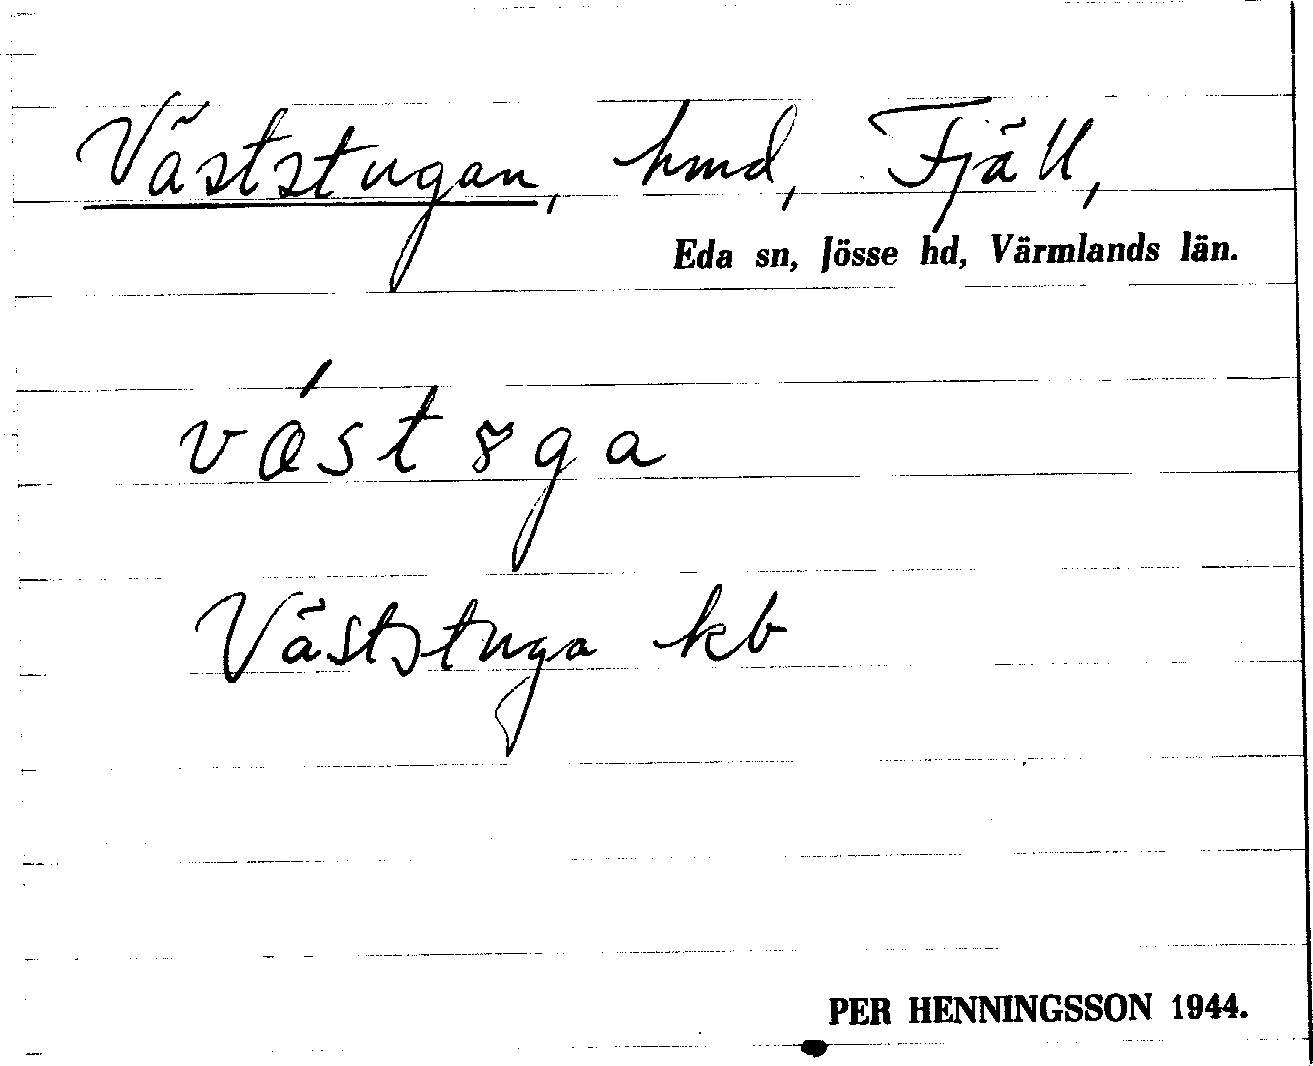 Väststugan, hmd, Fjäll,
Eda sn, Jösse hd, Värmlands län.
Väststuga kb
PER HENNINGSSON 1944.